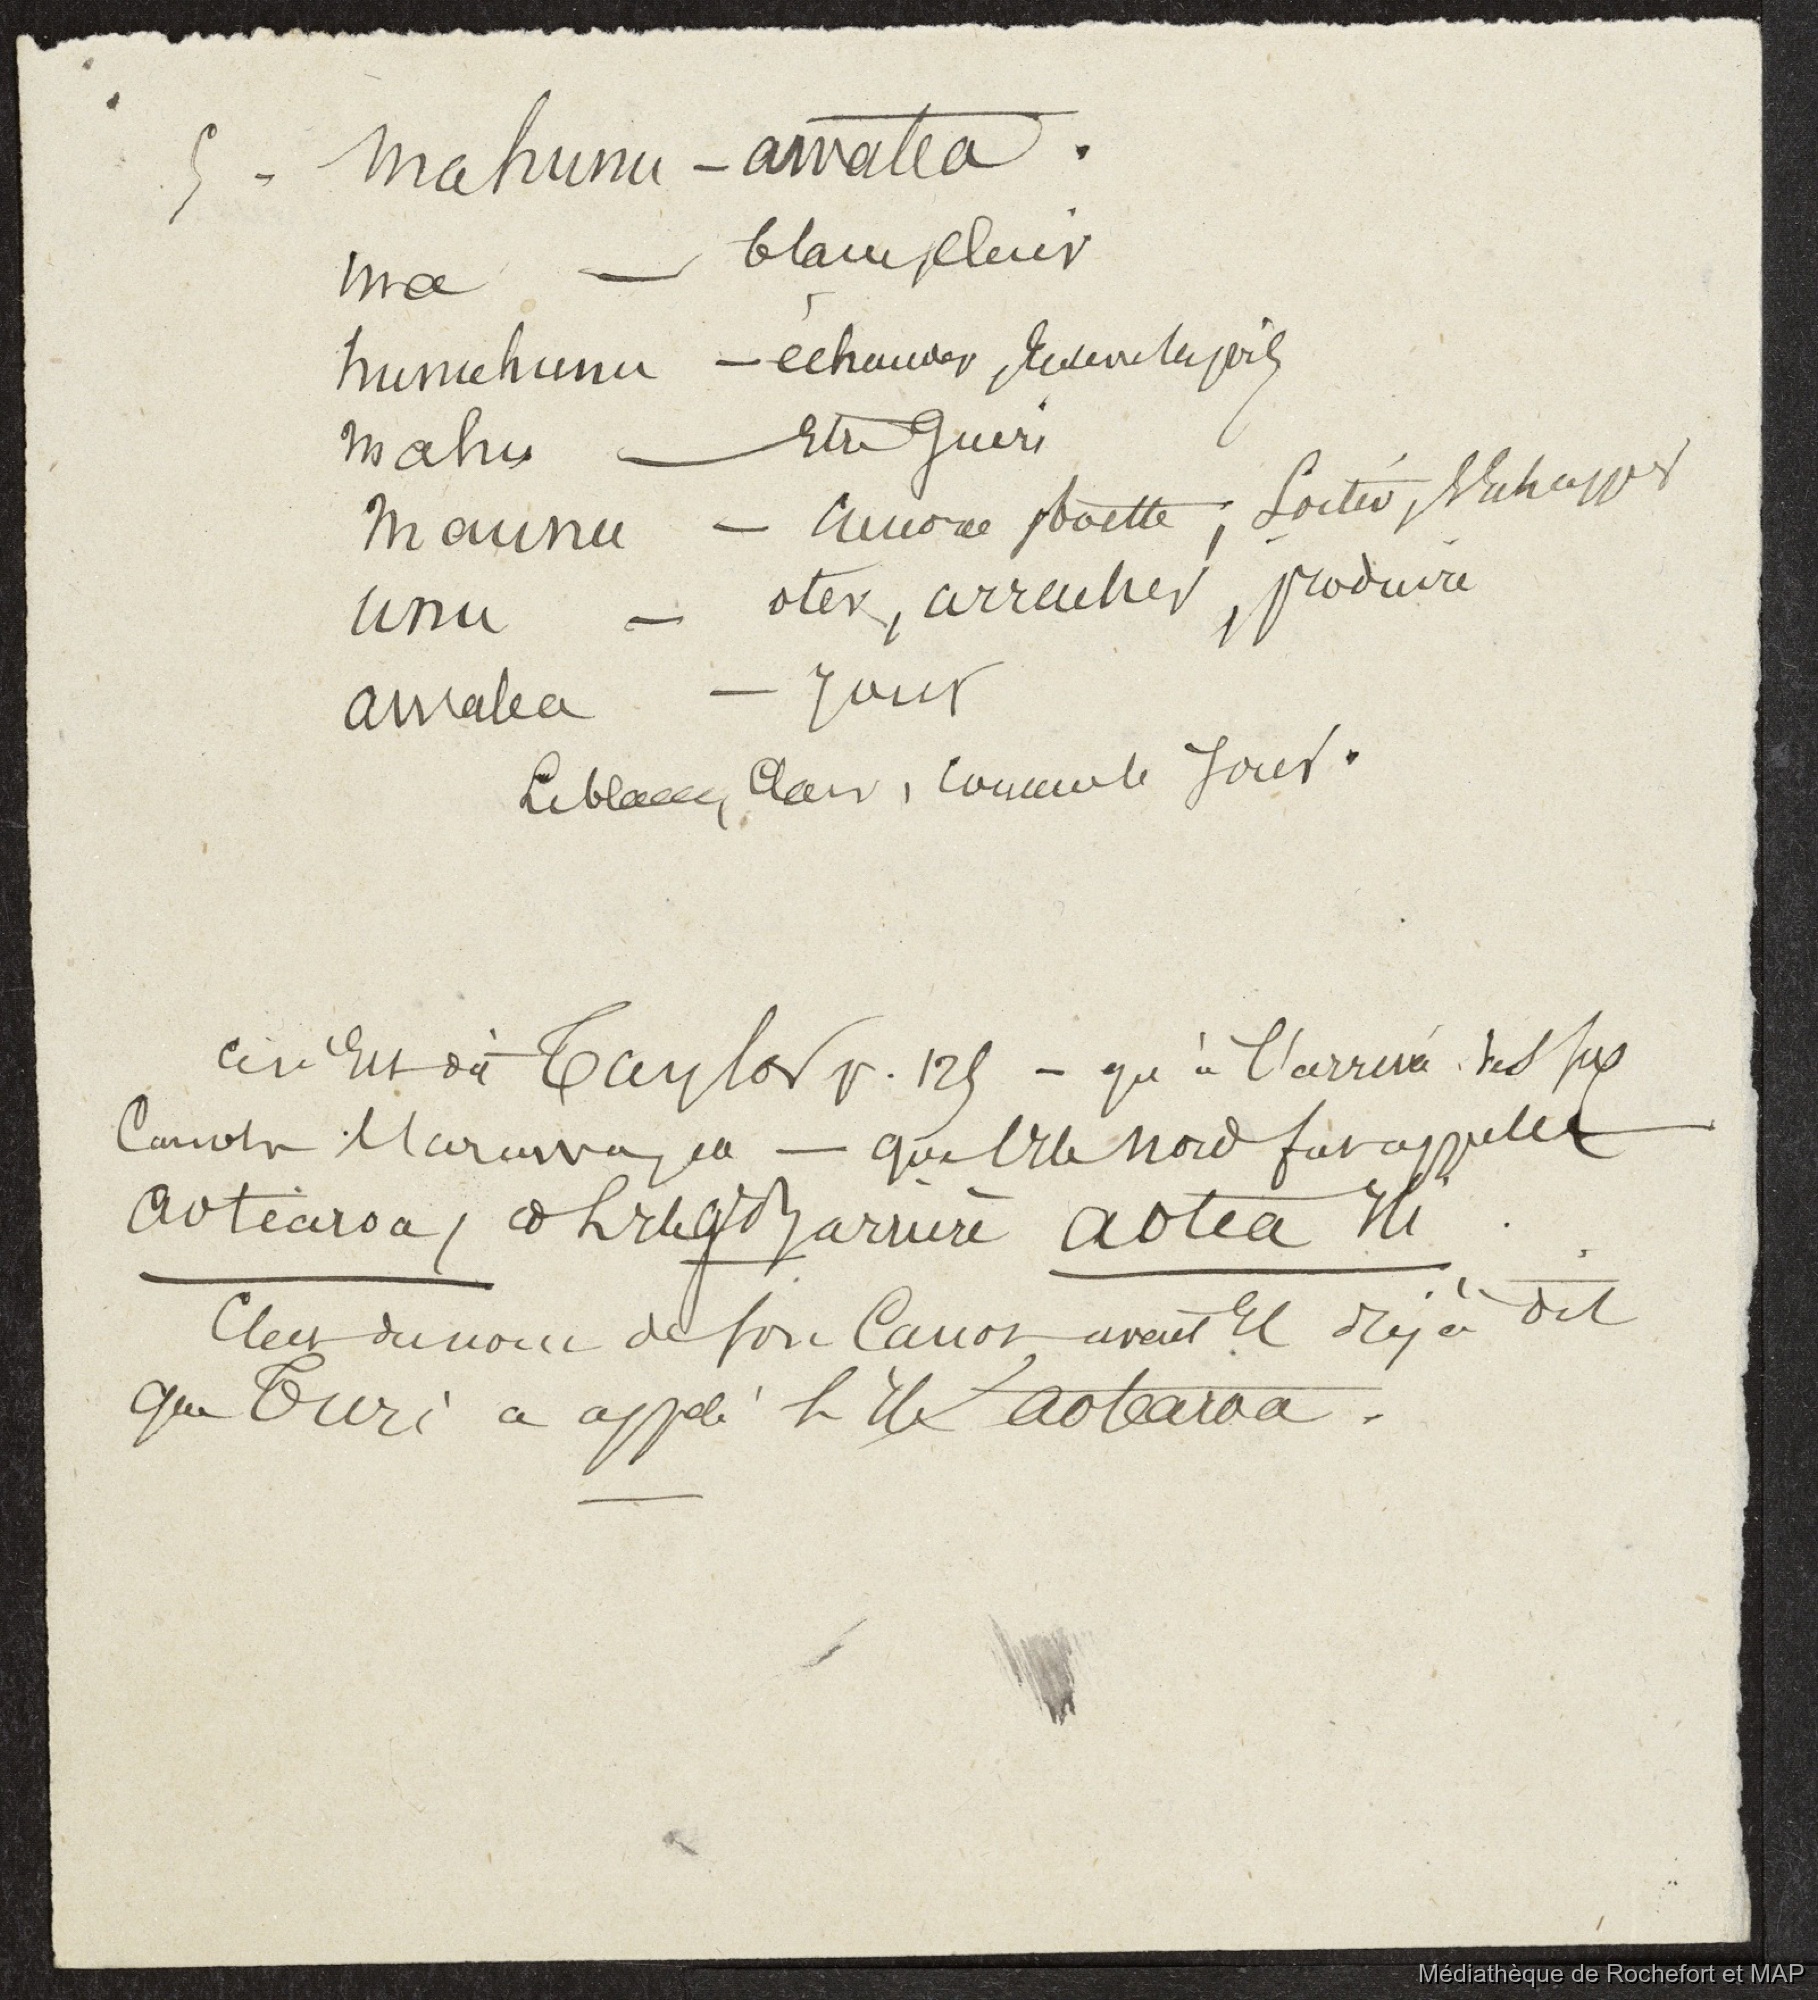 5 - Mahunu - awatea.
ma — blanc, clair
hunuhunu — échauder, les poils
mahu — Etre Guéri
Maunu — amorce, boette, Sortir, s'Echapper
unu — oter, arracher, produire
awatea — Jour
Le blanc, Clair, comme le Jour.
Taylor p. 125 — qu'à l'arrivée des six
Canots — que l'Ile Nord fut appellée
Aotearoa, arrière aotea iti.
C'est du nom de son Canot, avait Il déjà dit
que Turi a appelé l'Ile aotearoa.
Médiathèque de Rochefort et MAP